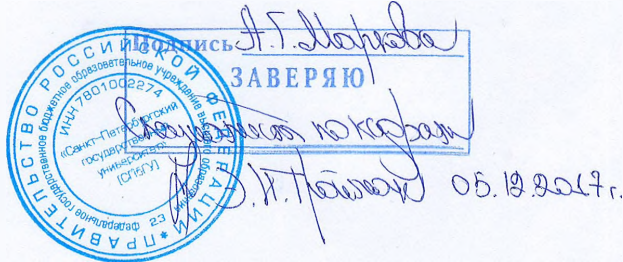 Подпись А.Г. Маркова
ЗАВЕРЯЮ
Специалист по кадрам
05.12.2017г.
ПРАВИТЕЛЬСТВО РОССИЙСКОЙ ФЕДЕРАЦИИ *
федеральное государственное бюджетное образовательное учреждение высшего образования
ИНН 7801002274
«Санкт-Петербургский
государственный
университет»
[СПбГУ]
23